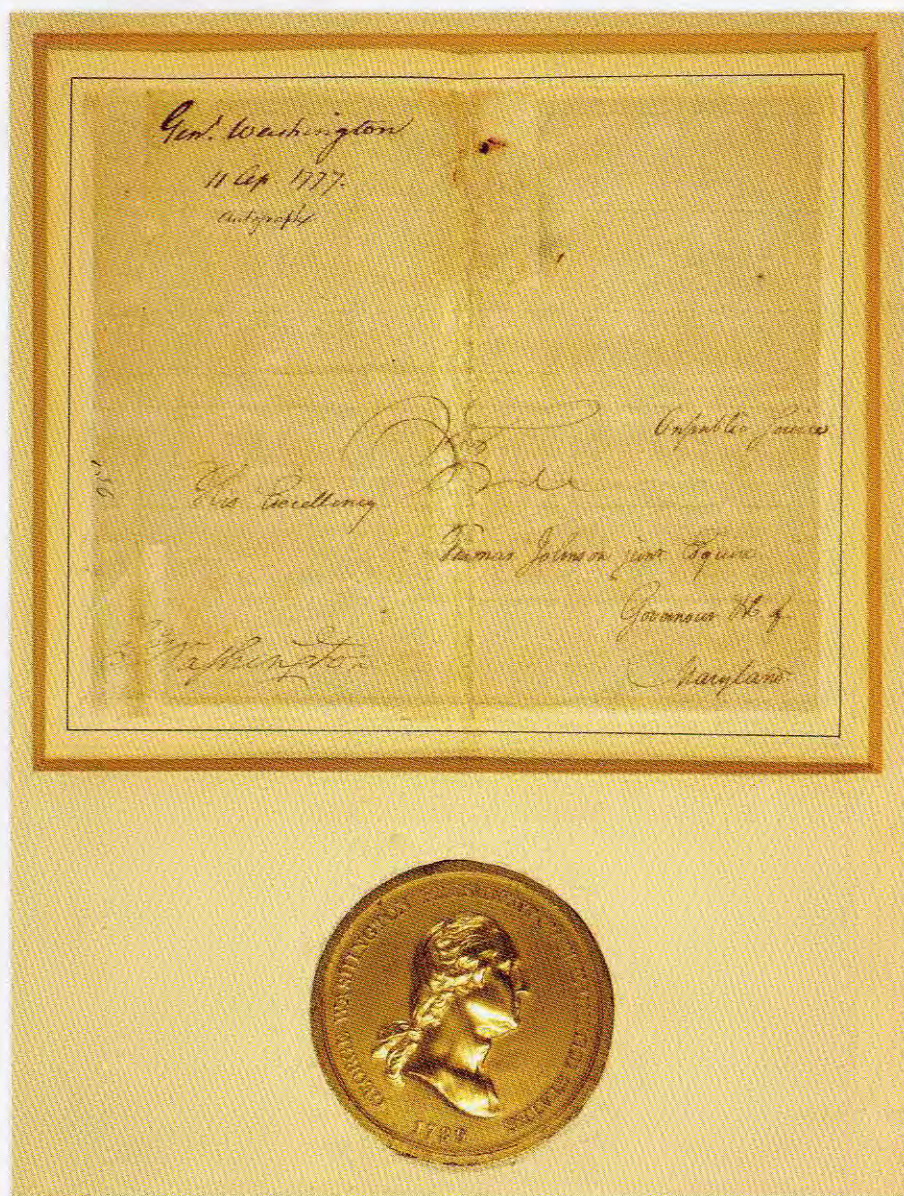 Genl. Washington
11 Ap 1777.
Autograph
On publick Service
His Excellency
Thomas Johnson junr Esquire
Governour &c. of
Maryland
G Washington
GEORGE WASHINGTON PRESIDENT OF THE UNITED STATES
1789